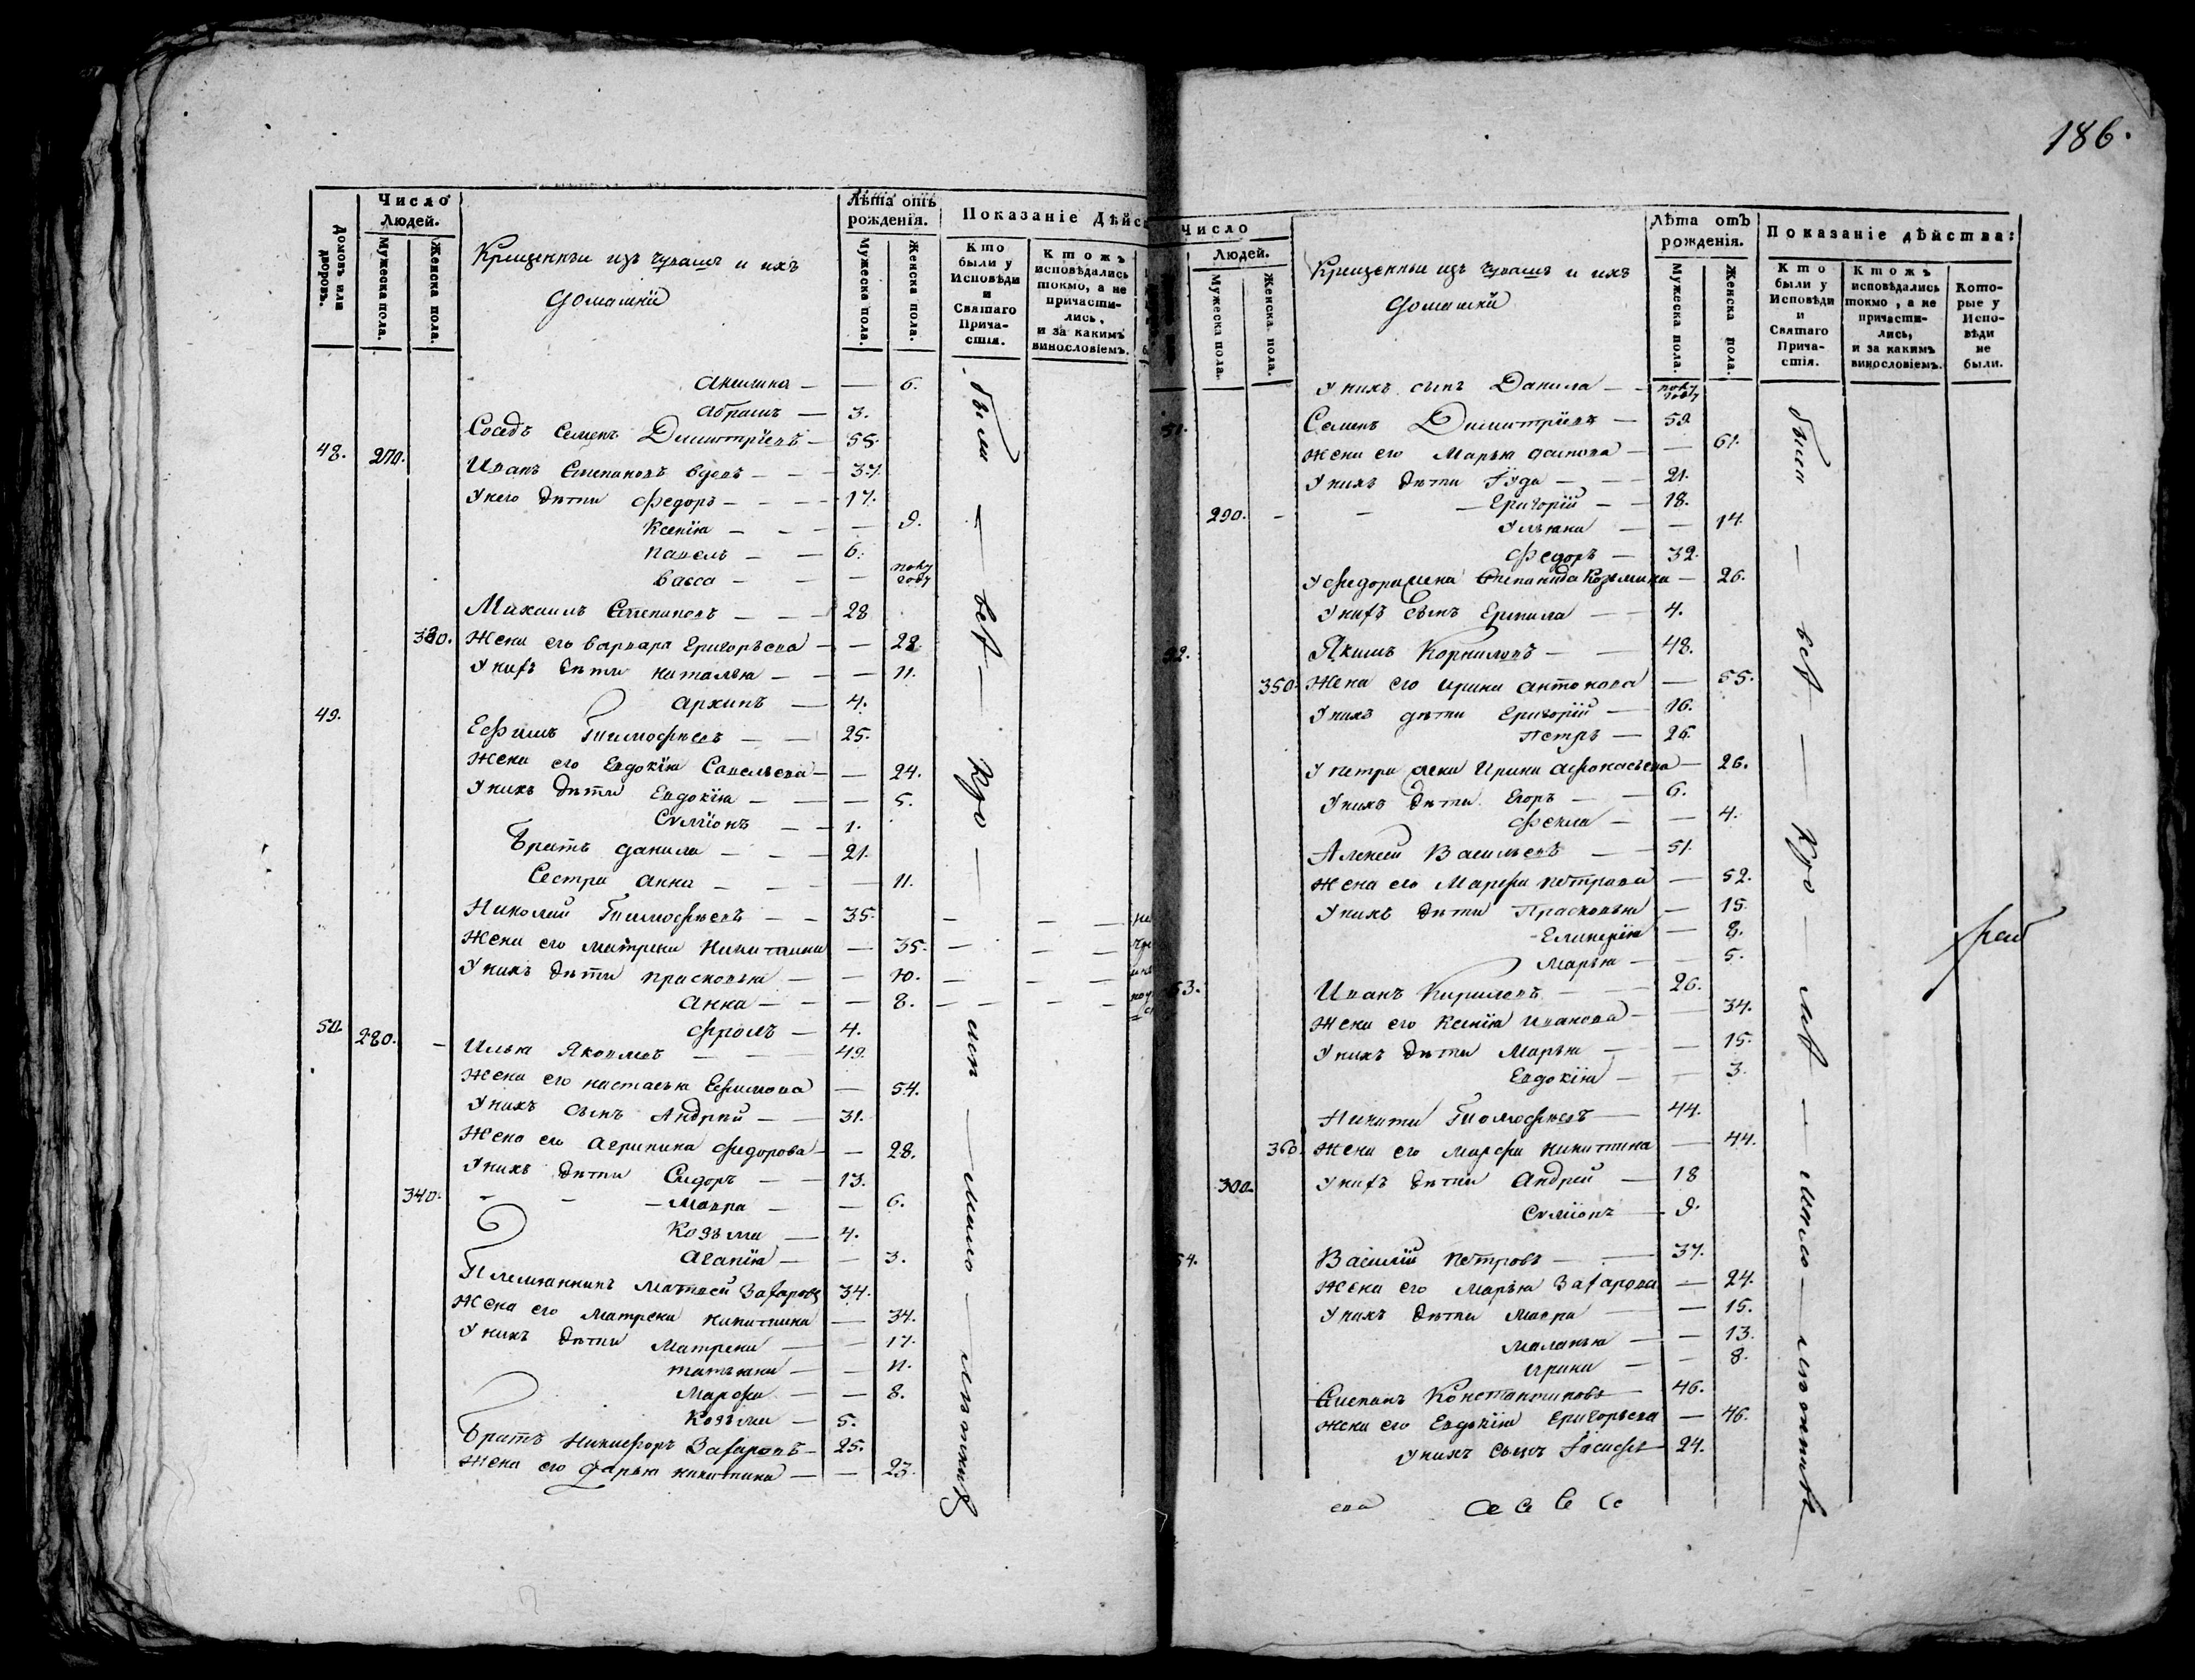 Число
Людей.
Домовъ или дворовъ.
Мужеска пола.
Женска пола.
Крещенныи изъ чувашъ и ихъ
домашніи
Лѣта отъ рожденія.
Мужеска пола.
Женска пола.
Показаніе Дѣйс
Кто были у Исповѣди и Святаго Прича-стія.
Ктожъ исповѣдались токмо, а не причасти-лись, и за какимъ винословіемъ.
Акилина — — 6.
Абрамъ — 3.
Соседъ Семенъ Димитріевъ — 55.
48. 270. Иванъ Степановъ вдовъ — — 37.
У него дѣти Федоръ — — — 17.
Ксенія — — — — 9.
Павелъ — — 6.
Васса — — — полу году
Михаилъ Степановъ — — — 28
330. Жена его Варвара Григорьева — — 28
У нихъ дѣти Наталья — — — 11.
Архипъ — 4.
49.
Ефимъ Тимофѣевъ — — 25.
Жена его Евдокія Савельева — — 24.
У нихъ дѣти Евдокія — — — 5.
Сѵмеонъ — — 1.
Братъ Данила — — — 21.
Сестра Анна — — — — 11.
Николай Тимофѣевъ — — 35. — — —
Жена его Матрена Никитина — 35. — — —
У нихъ дѣти Прасковья — — 10. — — —
Анна — — — 8. — — — —
Фролъ — 4.
50. 280. — Илья Яковлевъ — — — 49.
Жена его Настасья Ефимова — 54.
У нихъ сынъ Андрей — — 31.
Жена его Агрипина Федорова — — 28.
У нихъ дѣти Сидоръ — — 13.
340. — — — Мавра — — 6.
Козьма — 4.
Агапія — — 3.
Племянникъ Матвей Захаровъ 34.
Жена его Матрена Никитина — 34.
У нихъ дѣти Матрена — — 17.
Татьяна — — 11.
Марфа — — 8.
Козьма — 5.
Братъ Никифоръ Захаровъ — 25.
Жена его Дарья Никитина — — 23.
были — всѣ — Кро
186.
Число
Людей.
Мужеска пола.
Женска пола.
Крещенныи изъ чувашъ и ихъ
домашніи
Лѣта отъ рожденія.
Мужеска пола.
Женска пола.
Показаніе дѣйства:
Кто были у Исповѣди и Святаго Прича-стія.
Ктожъ исповѣдались токмо, а не причасти-лись, и за какимъ винословіемъ.
Кото-рые у Испо-вѣди не были.
У нихъ сынъ Данила — — полу году
51. Семенъ Димитріевъ — 59.
Жена его Марья Осипова — — 61.
У нихъ дѣти Іуда — — — 21.
290. — — — Григорій — — 18.
Ульяна — — 14.
Федоръ — 32.
У Федора жена Степанида Козьмина — 26.
У нихъ сынъ Ермила — — 4.
52. Якимъ Корниловъ — — 48.
350. Жена его Ирина Антонова — 55.
У нихъ дѣти Григорій — 16.
Петръ — 26.
У Петра жена Ирина Афонасьева — 26.
У нихъ дѣти Егоръ — — 6.
Фекла — — 4.
Алексей Васильевъ — — 51.
Жена его Марфа Петрова — 52.
У нихъ дѣти Прасковья — 15.
Гликерія — 8.
Марья — — 5.
53.
Иванъ Кириловъ — — 26.
Жена его Ксенія Иванова — — 34.
У нихъ дѣти Марья — — 15.
Евдокія — — 3.
Никита Тимофѣевъ — 44.
360. Жена его Марфа Никитина — 44.
300. У нихъ дѣти Андрей — 18
Сѵмеонъ — 9.
54. Василій Петровъ — — 37.
Жена его Марья Захарова — 24.
У нихъ дѣти Мавра — — 15.
Маланья — — 13.
Ирина — — 8.
Степанъ Константиновъ — 46.
Жена его Евдокія Григорьева — 46.
У нихъ сынъ Іосифъ — 24.
были — всѣ — Кро